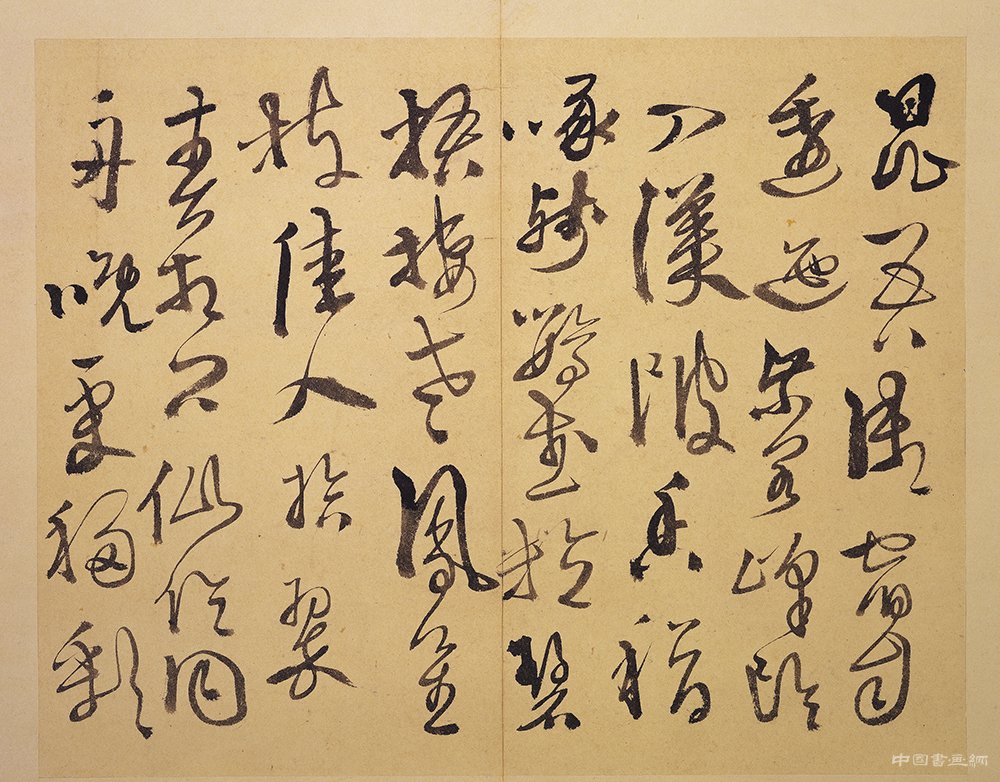 昆吾御宿自
逶迤紫閣峰陰
入渼陂香稻
啄殘鸚鵡粒碧
梧棲老鳳皇
枝佳人拾翠
春相問仙侶同
舟晚更移彩
中國書畫網